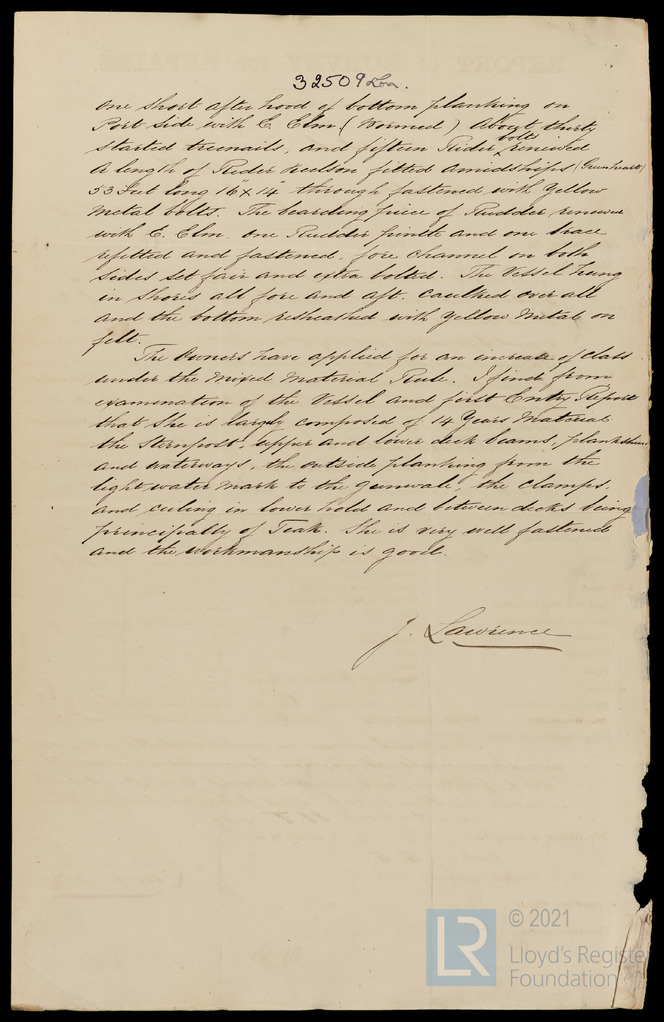 32509 Lon.
one short after hood of bottom planking on
Port side with E. Elm (Wormed) About thirty
started treenails, and fifteen Rider bolts renewed
A length of Rider Keelson fitted amidships (Greenheart)
53 Feet long 16" x 14" through fastened with Yellow
Metal bolts. The bearding piece of Rudder renewed
with E. Elm. one Rudder pintle and one brace
refitted and fastened, fore channel on both
sides set fair and extra bolted. The Vessel hung
in Shores all fore and aft. Caulked over all
and the bottom resheathed with Yellow Metal on
felt.
The Owners have applied for an increase of class
under the Mixed Material Rule. I find from
examination of the Vessel and first Entry Report
that she is largely composed of 14 Years Material
the Sternpost, upper and lower deck beams, planksheers
and waterways, the outside planking from the
light water mark to the gunwale, the clamps,
and ceiling in lower hold and between decks being
principally of Teak. She is very well fastened
and the workmanship is good.
J. Lawrence
LR
© 2021
Lloyd's Registe
Foundation